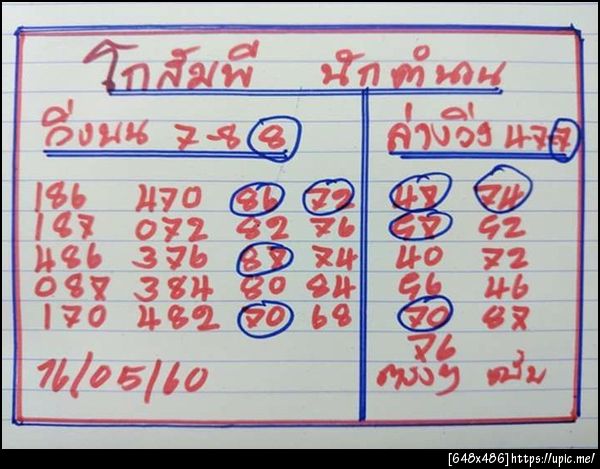 โกสัมพี นักคำนวน
วิ่งบน 7-8 8 ล่างวิ่ง 47 7
186 470 86 72 47 74
187 072 82 76 97 92
486 376 87 74 40 72
087 384 80 84 96 46
170 482 70 68 70 87
76
16/05/60 ตรงๆ เน้น
[648x486]https://upic.me/